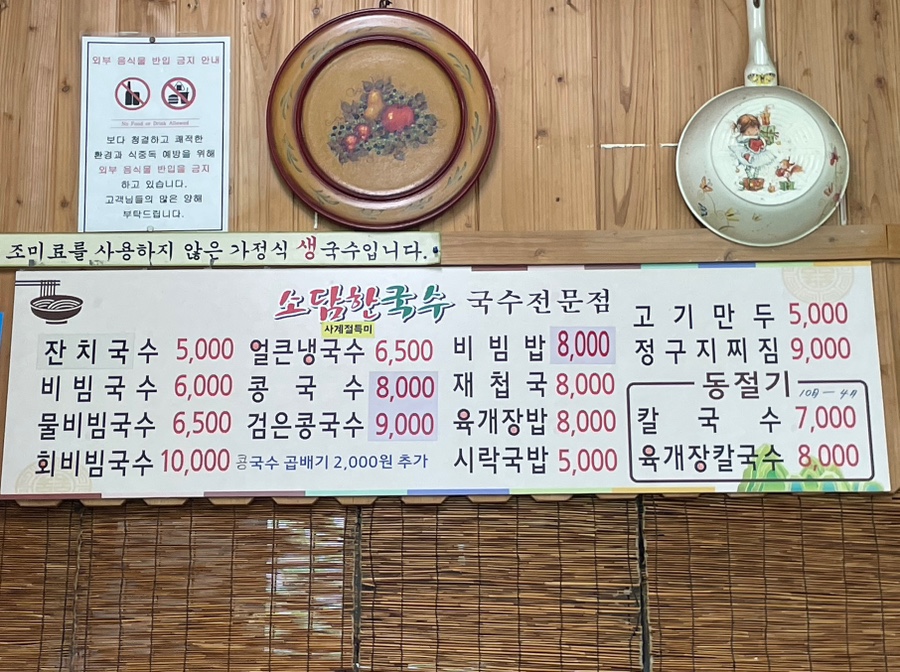 외부 음식물 반입 금지 안내
No Food or Drink Allowed
보다 청결하고 쾌적한
환경과 식중독 예방을 위해
외부 음식물 반입을 금지
하고 있습니다.
고객님들의 많은 양해
부탁드립니다.
조미료를 사용하지 않은 가정식 생국수입니다.
소담한국수 국수전문점
잔치국수 5,000
비빔국수 6,000
물비빔국수 6,500
회비빔국수 10,000
사계절특미
얼큰냉국수 6,500
콩국수 8,000
검은콩국수 9,000
콩국수 곱배기 2,000원 추가
비빔밥 8,000
재첩국 8,000
육개장밥 8,000
시락국밥 5,000
고기만두 5,000
정구지찌짐 9,000
동절기 10月 - 4月
칼국수 7,000
육개장칼국수 8,000